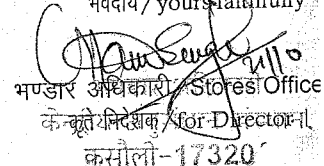 भवदीय/yours faithfully
21/10
भण्डार अधिकारी/Stores Office
कृते निदेशक/for Director
कसौली-17320